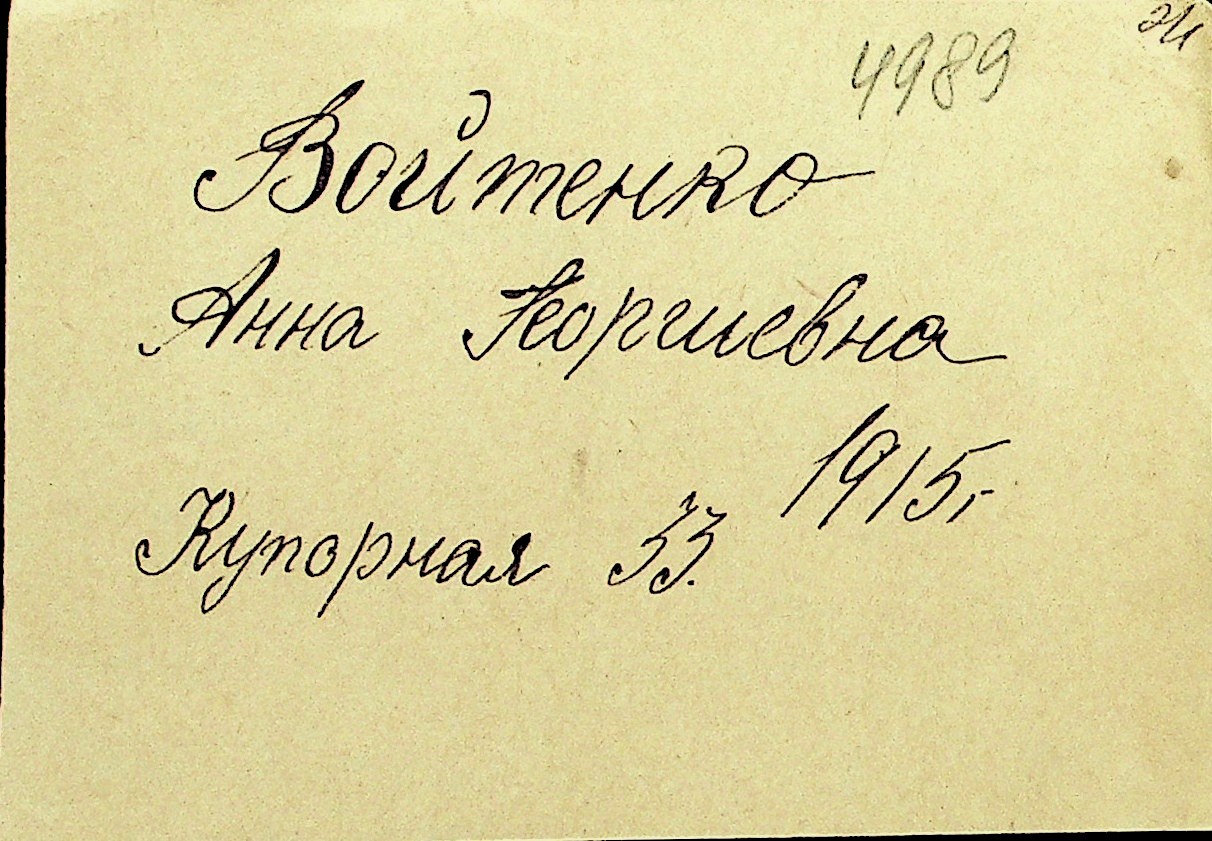 4989
Войтенко
Анна Георгиевна
1915г
Купорная 33.